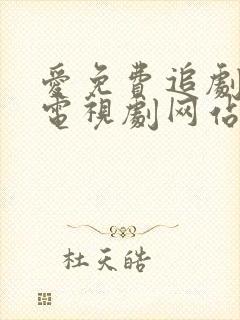 愛免費追劇
電視劇网佔
杜天皓